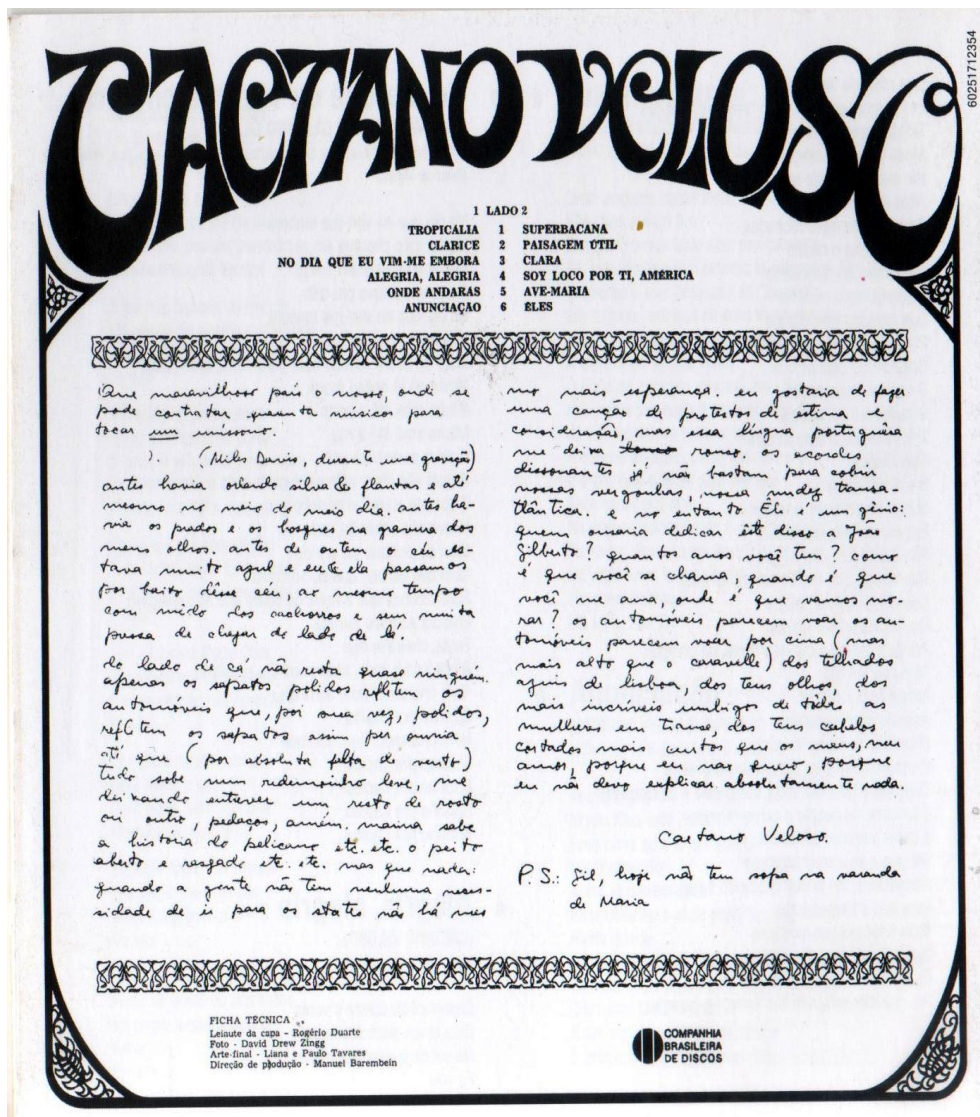 CAETANO VELOSO
60251712354
1 LADO 2
TROPICALIA 1 SUPERBACANA
CLARICE 2 PAISAGEM ÚTIL
NO DIA QUE EU VIM-ME EMBORA 3 CLARA
ALEGRIA, ALEGRIA 4 SOY LOCO POR TI, AMÉRICA
ONDE ANDARAS 5 AVE-MARIA
ANUNCIAÇÃO ELES
Que maravilhoso país o nosso, onde se
pode contratar quarenta músicos para
tocar um uníssono.
(Miles Davis, durante uma gravação)
antes havia orlando silva & flautas e até
mesmo no meio do meio dia. antes ha-
via os prados e os bosques na gravura dos
meus olhos. antes de ontem o céu es-
tava muito azul e eu & ela passamos
por baixo dêsse céu, ao mesmo tempo
com mêdo dos cachorros e sem muita
pressa de chegar do lado de lá.
do lado de cá não resta quase ninguém.
apenas os sapatos polidos refletem os
automóveis que, por sua vez, polidos,
refletem os sapatos assim per omnia
até que (por absoluta falta de vento)
tudo sobe num redemoinho leve, me
deixando entrever um resto de rosto
ou outro, pedaços, amém. marina sabe
a história do pelicano etc. etc. o peito
aberto e rasgado etc. etc. mas que nada:
quando a gente não tem nenhuma neces-
sidade de ir para os states não há mes
mo mais esperança. eu gostaria de fazer
uma canção de protestos de estima e
consideração, mas essa língua portuguêsa
me deixa rouco. os acordes
dissonantes já não bastam para cobrir
nossas vergonhas, nossa nudez transa-
tlântica. e no entanto Ele é um gênio:
quem ousaria dedicar êste disco a João
Gilberto? quantos anos você tem? como
é que você se chama, quando é que
você me ama, onde é que vamos mo-
rar? os automóveis parecem voar, os au-
tomóveis parecem voar por cima (mas
mais alto que o caravelle) dos telhados
azuis de lisboa, dos teus olhos, dos
mais incríveis umbigos de tôdas as
mulheres em transe, dos teus cabelos
cortados mais curtos que os meus, meu
amor, porque eu não quero, porque
eu não devo explicar absolutamente nada.
Caetano Veloso.
P. S.: Gil, hoje não tem sopa na varanda
de Maria
FICHA TÉCNICA
Leiaute da capa - Rogério Duarte
Foto - David Drew Zingg
Arte-final - Liana e Paulo Tavares
Direção de produção - Manuel Barembein
COMPANHIA
BRASILEIRA
DE DISCOS